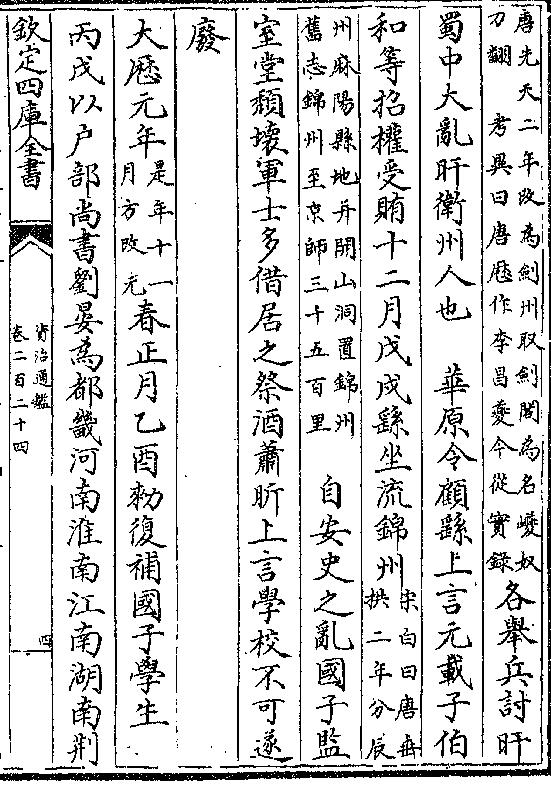 唐先天二年改為劍州取劍閣為名巙奴
刀翻　考異曰唐厯作李昌夔今從實錄
各舉兵討旰
蜀中大亂旰衛州人也　華原令顧繇上言元載子伯
和等招權受賄十二月戊戌繇坐流錦州
宋白曰唐垂
拱二年分辰
州麻陽縣地并開山洞置錦州
舊志錦州至京師三十五百里
自安史之亂國子監
室堂頽壞軍士多借居之祭酒蕭昕上言學校不可遂
廢
大厯元年
是年十一
月方改元
春正月乙酉勑復補國子學生
丙戌以户部尚書劉晏為都畿河南淮南江南湖南荆
欽定四庫全書
資治通鑑
卷二百二十四
四